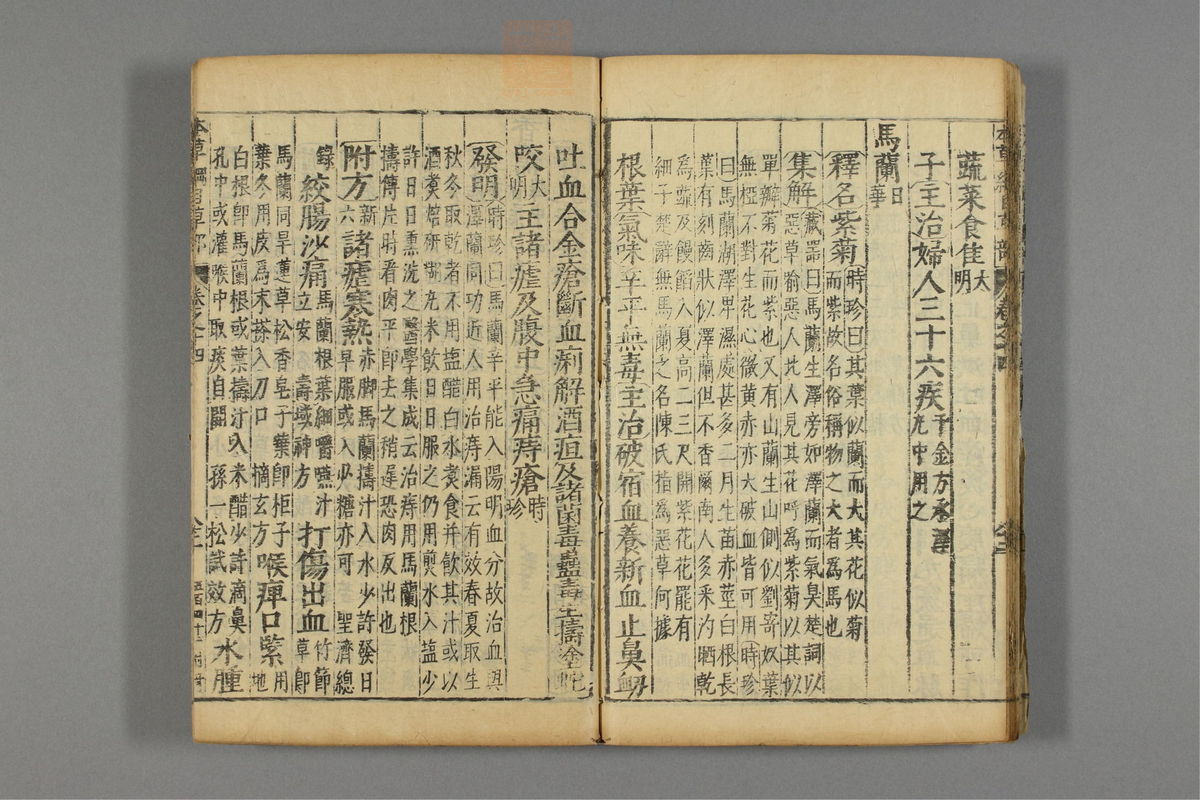 蔬菜食佳大明
子主治婦人三十六疾千金方承澤丸中用之
馬蘭日華
釋名紫菊時珍曰其葉似蘭而大其花似菊而紫故名俗稱物之大者為馬也
集解藏器曰馬蘭生澤旁如澤蘭而氣臭楚詞以惡草喻惡人北人見其花呼為紫菊以其似
單瓣菊花而紫也又有山蘭生山側似劉寄奴葉無椏不對生花心微黃赤亦大破血皆可用時珍
曰馬蘭湖澤卑濕處甚多二月生苗赤莖白根長葉有刻齒狀似澤蘭但不香爾南人多采汋晒乾
為蔬及饅餡入夏高二三尺開紫花花罷有細子楚辭無馬蘭之名陳氏指為惡草何據
根葉氣味辛平無毒主治破宿血養新血止鼻衄
吐血合金瘡斷血痢解酒疸及諸菌毒蠱毒生擣塗蛇
咬大明主諸瘧及腹中急痛痔瘡時珍
發明時珍曰馬蘭辛平能入陽明血分故治血與澤蘭同功近人用治痔漏云有效春夏取生
秋冬取乾者不用塩醋白水煑食并飲其汁或以酒煑焙研糊丸米飲日日服之仍用煎水入塩少
許日日熏洗之醫學集成云治痔用馬蘭根擣傅片時看肉平即去之稍遲恐肉反出也
附方新六諸瘧寒熱赤脚馬蘭擣汁入水少許發日早服或入少糖亦可聖濟總
錄絞腸沙痛馬蘭根葉細嚼嚥汁立安壽域神方打傷出血竹節草即
馬蘭同旱蓮草松香皂子葉即柜子葉冬用皮為末搽入刀口摘玄方喉痺口緊用地
白根即馬蘭根或葉擣汁入米醋少許滴鼻孔中或灌喉中取痰自開孫一松試效方水腫
本草綱目草部 卷之十四